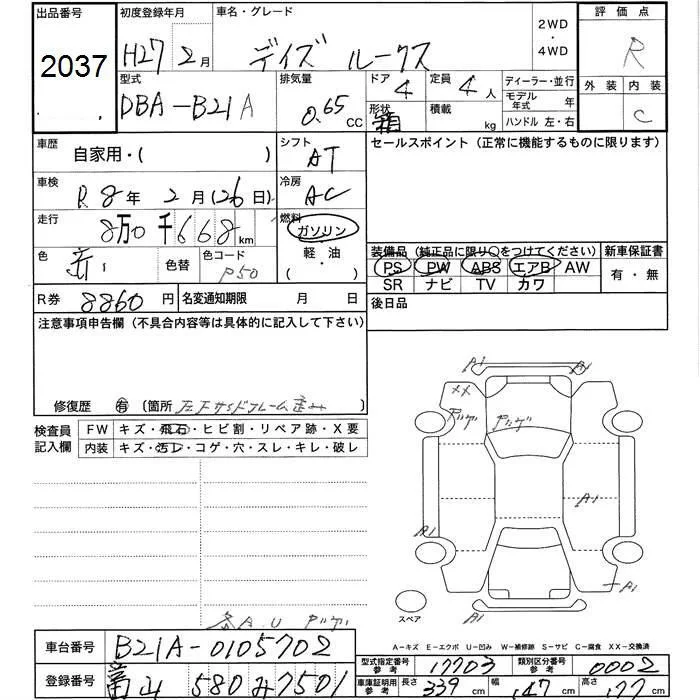 出品番号 初度登録年月 車名・グレード 2WD・4WD 評価点
2037 H27 2月 デイズ ルークス R
型式 排気量 ドア 定員 ディーラー・並行 外装 内装
DBA-B21A 0.65 CC 4 4人 モデル年式 年 C
形状 箱 積載 kg ハンドル 左・右
車歴 自家用・( ) シフト AT セールスポイント(正常に機能するものに限ります)
車検 R8年 2月(26日) 冷房 AC
走行 8万0千668km 燃料 ガソリン・軽・油・( )
色 色替 色コード P50
装備品(純正品に限り○をつけてください) 新車保証書
PS PW ABS エアB AW 有・無
SR ナビ TV カワ
R券 8860円 名変通知期限 月 日 後日品
注意事項申告欄(不具合内容等は具体的に記入して下さい)
修復歴 有 (箇所 左Fサイドフレーム歪み)
検査員記入欄 FW キズ・飛石・ヒビ割・リペア跡・X要
内装 キズ・汚レ・コゲ・穴・スレ・キレ・破レ
A1 A1
XX
A1
A1
A1
A1
スペア
各A.U
A-キズ E-エクボ U-凹み W-補修跡 S-サビ C-腐食 XX-交換済
車台番号 B21A-0105702 型式指定番号 参考 17703 類別区分番号 参考 0002
登録番号 富山 580 み 7501 車庫証明用 参考 長さ 339cm 幅 147cm 高さ 177cm